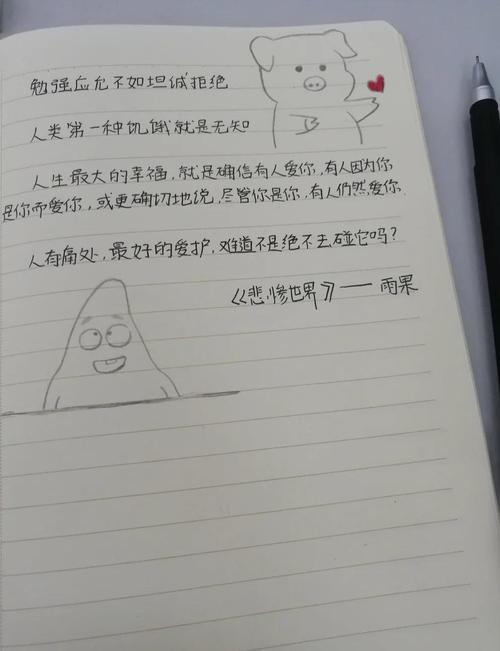 勉强应允不如坦诚拒绝
人类第一种饥饿就是无知
人生最大的幸福,就是确信有人爱你,有人因为你
是你而爱你,或更确切地说,尽管你是你,有人仍然爱你.
人有痛处,最好的爱护,难道不是绝不去碰它吗?
《悲惨世界》—— 雨果